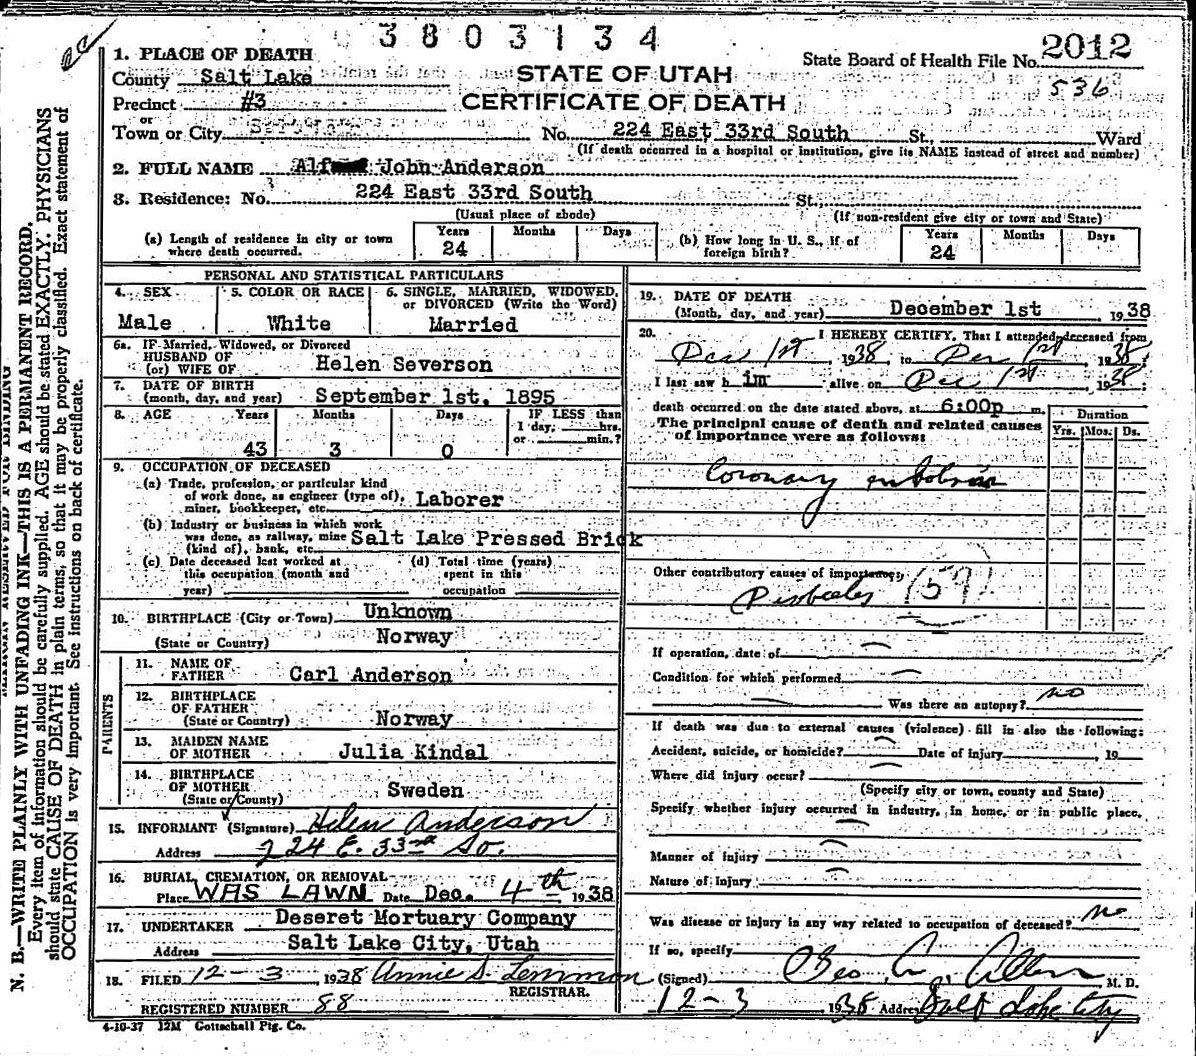 3803134
1. PLACE OF DEATH
County Salt Lake
Precinct #3
or
Town or City
STATE OF UTAH
CERTIFICATE OF DEATH
State Board of Health File No. 2012
536
No. 224 East 33rd South St., Ward
(If death occurred in a hospital or institution, give its NAME instead of street and number)
2. FULL NAME Alf John Anderson
3. Residence: No. 224 East 33rd South St.,
(Usual place of abode) (If non-resident give city or town and State)
(a) Length of residence in city or town where death occurred. Years 24 Months Days
(b) How long in U. S., if of foreign birth? Years 24 Months Days
PERSONAL AND STATISTICAL PARTICULARS
4. SEX Male
5. COLOR OR RACE White
6. SINGLE, MARRIED, WIDOWED, or DIVORCED (Write the Word) Married
6a. IF Married, Widowed, or Divorced
HUSBAND OF
(or) WIFE OF Helen Severson
7. DATE OF BIRTH
(month, day, and year) September 1st, 1895
8. AGE Years 43 Months 3 Days 0 IF LESS than 1 day, hrs. or min.?
9. OCCUPATION OF DECEASED
(a) Trade, profession, or particular kind
of work done, as engineer (type of),
miner, bookkeeper, etc. Laborer
(b) Industry or business in which work
was done, as railway, mine
(kind of), bank, etc. Salt Lake Pressed Brick
(c) Date deceased last worked at
this occupation (month and
year)
(d) Total time (years)
spent in this
occupation
10. BIRTHPLACE (City or Town) Unknown
(State or Country) Norway
PARENTS
11. NAME OF
FATHER Carl Anderson
12. BIRTHPLACE
OF FATHER
(State or Country) Norway
13. MAIDEN NAME
OF MOTHER Julia Kindal
14. BIRTHPLACE
OF MOTHER
(State or Country) Sweden
15. INFORMANT (Signature) Helen Anderson
Address 224 E. 33rd So.
16. BURIAL, CREMATION, OR REMOVAL
Place WAS LAWN Date Dec. 4th 1938
17. UNDERTAKER Deseret Mortuary Company
Address Salt Lake City, Utah
18. FILED 12-3, 1938 Annie S. Lemmon
REGISTRAR.
REGISTERED NUMBER 88
4-10-37 12M Gottschall Ptg. Co.
19. DATE OF DEATH
(Month, day, and year) December 1st 1938
20. I HEREBY CERTIFY, That I attended deceased from
Dec 1st, 1938, to Dec 1st, 1938,
I last saw him alive on Dec 1st, 1938,
death occurred on the date stated above, at 6:00p m.
The principal cause of death and related causes
of importance were as follows:
Duration
Yrs. Mos. Ds.
Coronary embolism
Other contributory causes of importance:
Diabetes (59)
If operation, date of
Condition for which performed
Was there an autopsy? no
If death was due to external causes (violence) fill in also the following:
Accident, suicide, or homicide? Date of injury , 19
Where did injury occur?
(Specify city or town, county and State)
Specify whether injury occurred in industry, in home, or in public place.
Manner of injury
Nature of injury
Was disease or injury in any way related to occupation of deceased? no
If so, specify
(Signed) Geo. A. Allen M. D.
12-3 1938 Address Salt Lake City
N. B.—WRITE PLAINLY WITH UNFADING INK—THIS IS A PERMANENT RECORD.
Every item of information should be carefully supplied. AGE should be stated EXACTLY. PHYSICIANS
should state CAUSE OF DEATH in plain terms, so that it may be properly classified. Exact statement of
OCCUPATION is very important. See instructions on back of certificate.